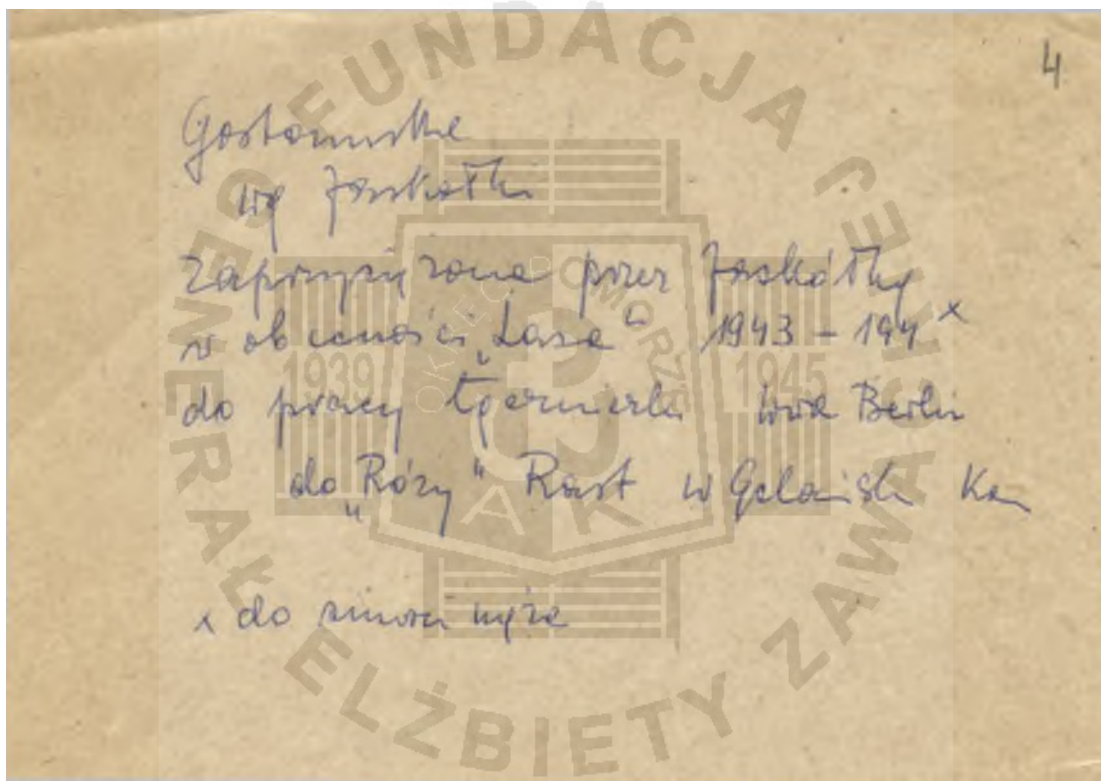 4
Gostomska
wg Jaskółki
Zaprzysiężona przez Jaskółkę
w obecności „Lasa" 1943 – 194 x
do pracy łączniczki Berlin
do „Róży" Rast w Gdańsku
x do śmierci męża
FUNDACJA GENERAŁ ELŻBIETY ZAWACKIEJ
OKRĘG POMORZE
1939 1945
AK